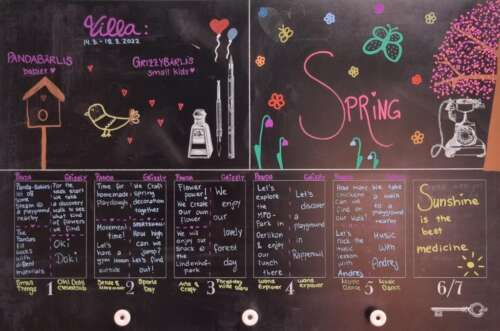 Villa:
14.3. - 18.3.2022
PANDABÄRLIS
babies ♥
GRIZZYBÄRLIS
small kids ♥
SPRING
PANDA
GRIZZLY
Panda-Babies
let off
some
steam @
a playground
nearby
The
Pandas
fill
bottles
with
different
materials
For the
week start
we take
a discovery
walk to see
what kind
of flowers
we
find
Oki
Doki
PANDA
GRIZZLY
Time for
homemade
playdough
Movement
time!
Let's
have a
good
time
outside
We Craft
spring
decoration
together
How high
can we
jump?
Let's
find
out!
PANDA
GRIZZLY
Flower
power!
We create
our own
flower
We will
enjoy our
snack @
the
Lindenhof-
park
We
enjoy
our
lovely
forest
day
PANDA
GRIZZLY
Let's
explore
the
MFO-
Park in
Oerlikon
& enjoy
our
lunch there
Let's
discover
a
playground
in
Rapperswil
PANDA
GRIZZLY
How many
chickens
can we
find on
our walk?
Let's
rock the
music
lesson
with
Andrej
We take
a walk
to a
playground
nearby
Music
with
Andrej
Sunshine
is the
best
medicine
Small
Things
1
2
Sports
Day
Arts &
Craft
3
4
World
Explorer
5
Music
Dance
6/7